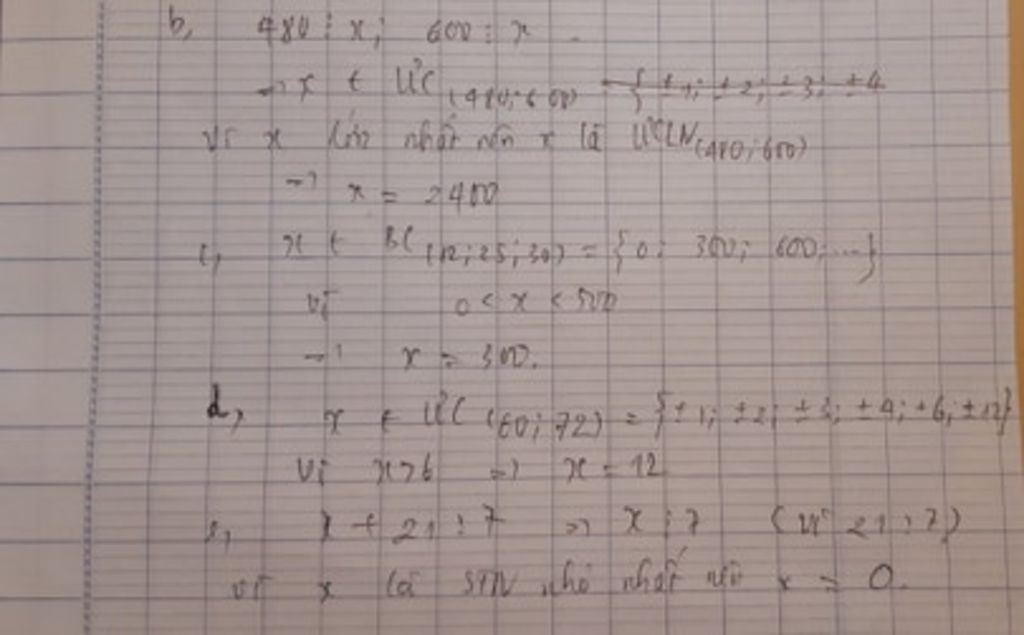 b, 480 ⋮ x; 600 ⋮ x
→ x ∈ ƯC (480; 600) = { ±1; ±2; ±3; ±4
vì x lớn nhất nên x là ƯCLN (480; 600)
→ x = 2400
c, x ∈ BC (12; 25; 30) = {0; 300; 600; ...}
vì 0 < x < 500
→ x = 300.
d, x ∈ ƯC (60; 72) = {±1; ±2; ±3; ±4; ±6; ±12}
vì x > 6 => x = 12
x + 21 ⋮ 7 => x ⋮ 7 (vì 21 ⋮ 7)
vì x là STN nhỏ nhất nên x = 0.